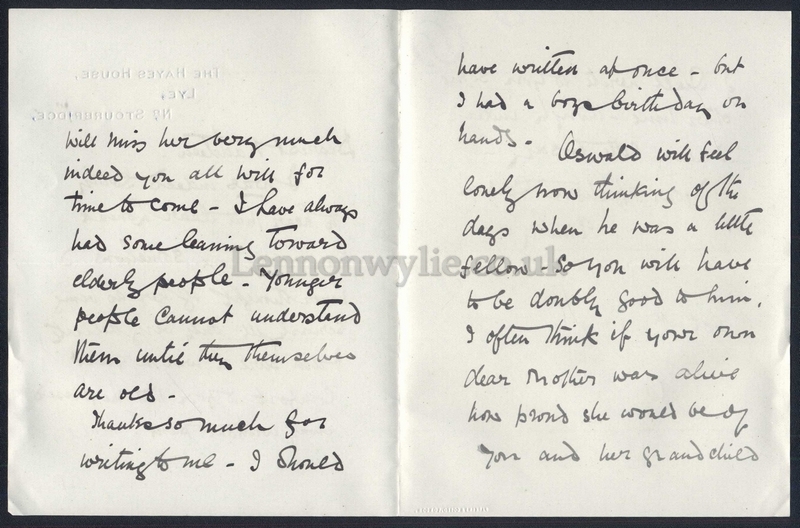 THE HAYES HOUSE,
LYE,
Nr STOURBRIDGE.
will miss her very much
indeed you all will for
time to come - I have always
had some leaning toward
elderly people - Younger
people cannot understand
them until they themselves
are old -
Thanks so much for
writing to me - I should
have written at once - but
I had a boys birthday on
hands - Oswald will feel
lonely now thinking of the
days when he was a little
fellow - So you will have
to be doubly good to him.
I often think if your own
dear Mother was alive
how proud she would be of
you and her grandchild
Lennonwylie.co.uk